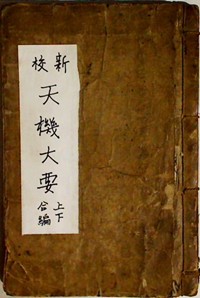 新校
天機大要
上下
合編